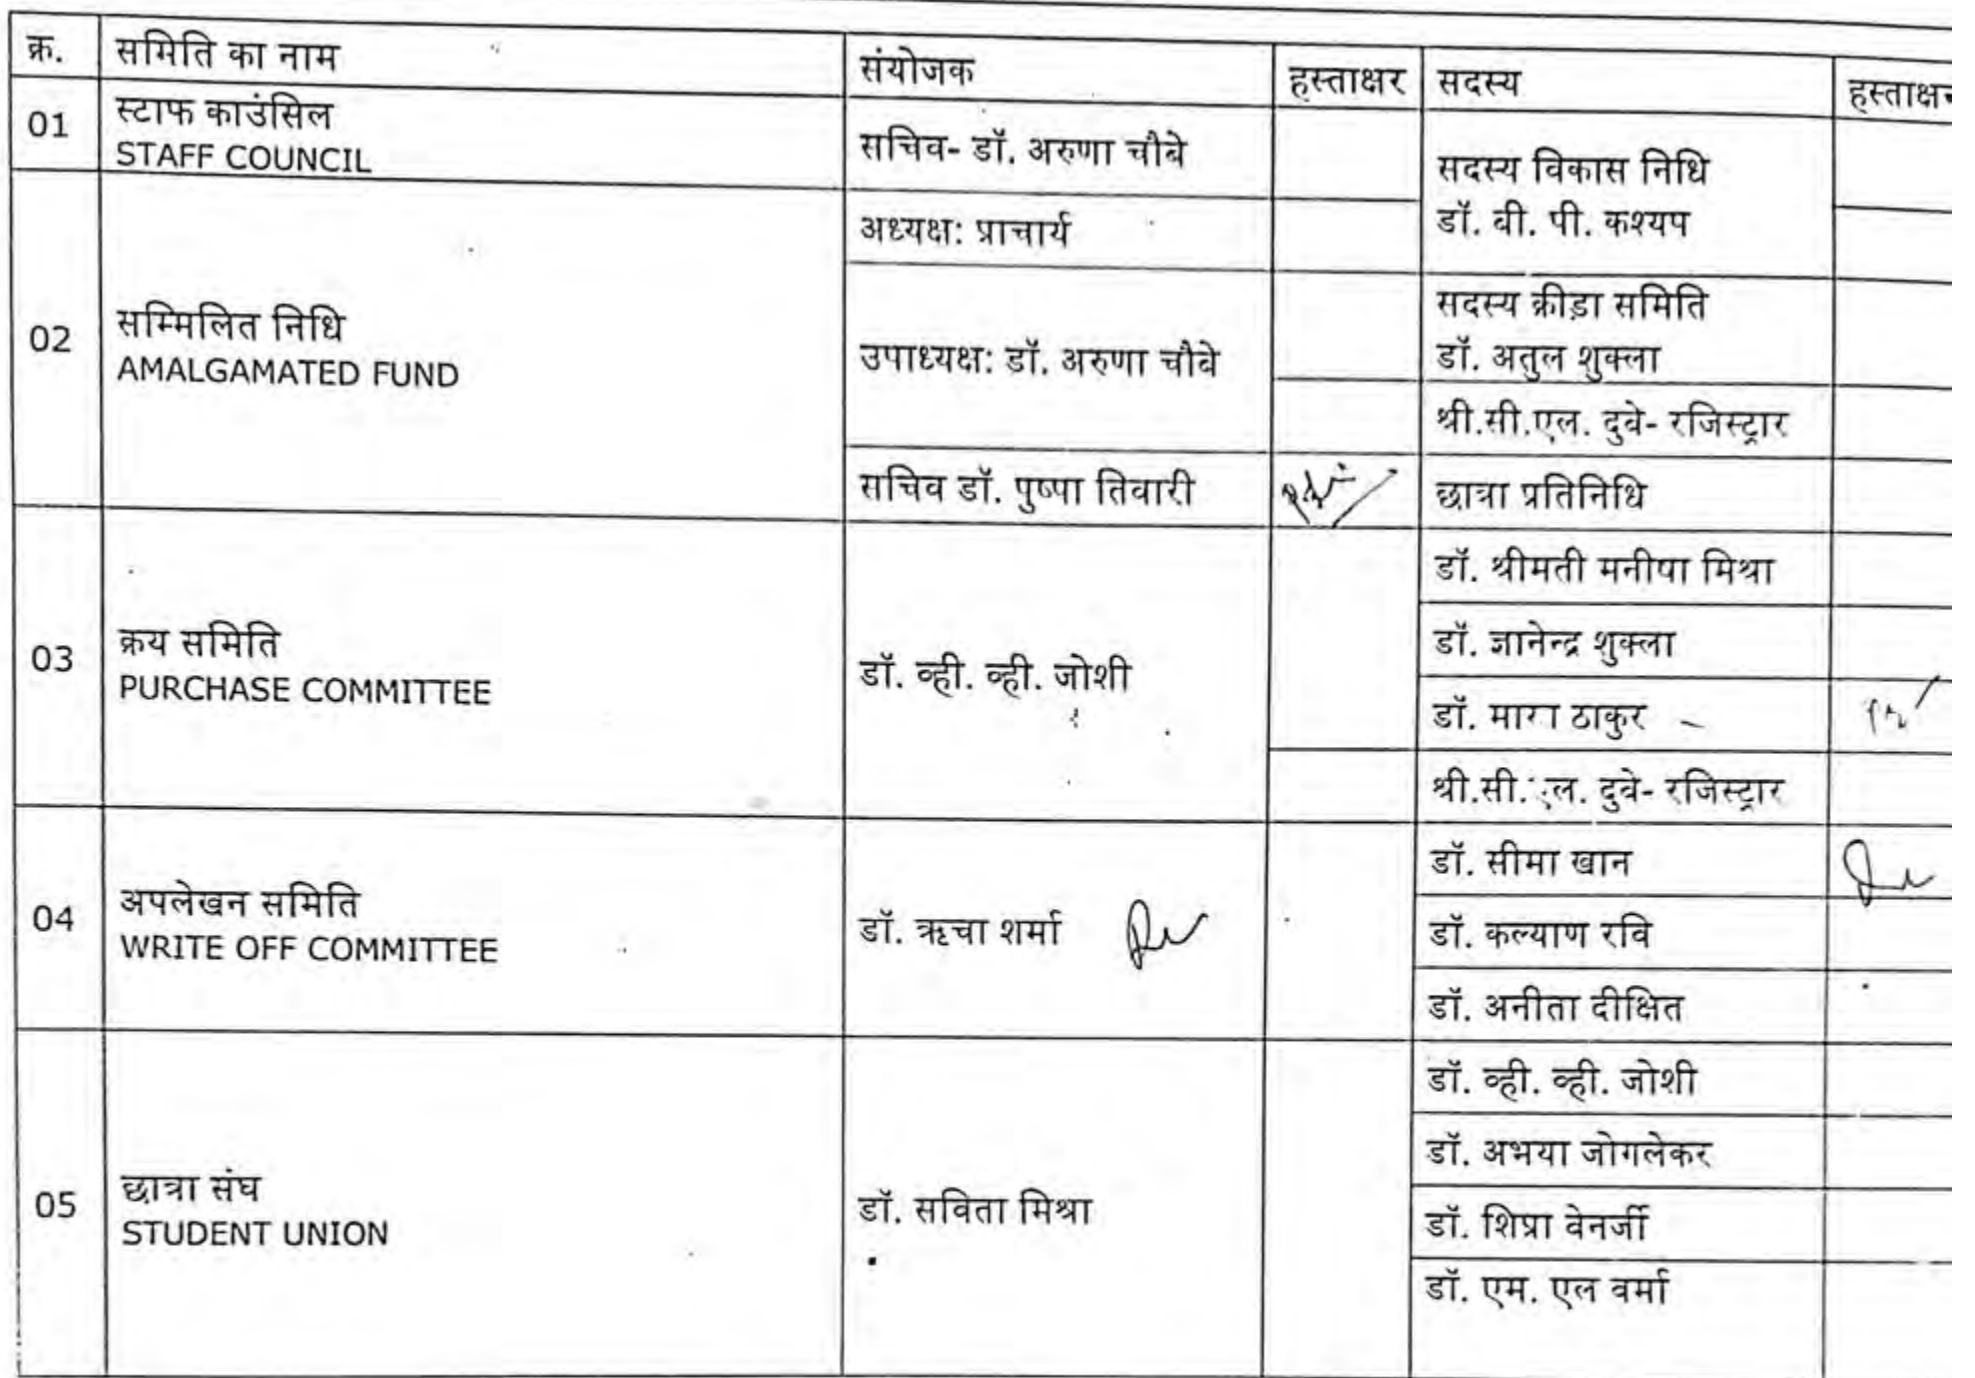 क्र. समिति का नाम संयोजक हस्ताक्षर सदस्य
01 स्टाफ काउंसिल
STAFF COUNCIL
सचिव- डॉ. अरुणा चौबे
सदस्य विकास निधि
डॉ. वी. पी. कश्यप
02 सम्मिलित निधि
AMALGAMATED FUND
अध्यक्ष: प्राचार्य
उपाध्यक्ष: डॉ. अरुणा चौबे
सचिव डॉ. पुष्पा तिवारी
सदस्य क्रीड़ा समिति
डॉ. अतुल शुक्ला
श्री.सी.एल. दुवे- रजिस्ट्रार
छात्रा प्रतिनिधि
03 क्रय समिति
PURCHASE COMMITTEE
डॉ. व्ही. व्ही. जोशी
डॉ. श्रीमती मनीषा मिश्रा
डॉ. ज्ञानेन्द्र शुक्ला
डॉ. ठाकुर
श्री.सी. दुवे- रजिस्ट्रार
04 अपलेखन समिति
WRITE OFF COMMITTEE
डॉ. ऋचा शर्मा
डॉ. सीमा खान
डॉ. कल्याण रवि
डॉ. अनीता दीक्षित
05 छात्रा संघ
STUDENT UNION
डॉ. सविता मिश्रा
डॉ. व्ही. व्ही. जोशी
डॉ. अभया जोगलेकर
डॉ. शिप्रा वेनर्जी
डॉ. एम. एल वर्मा